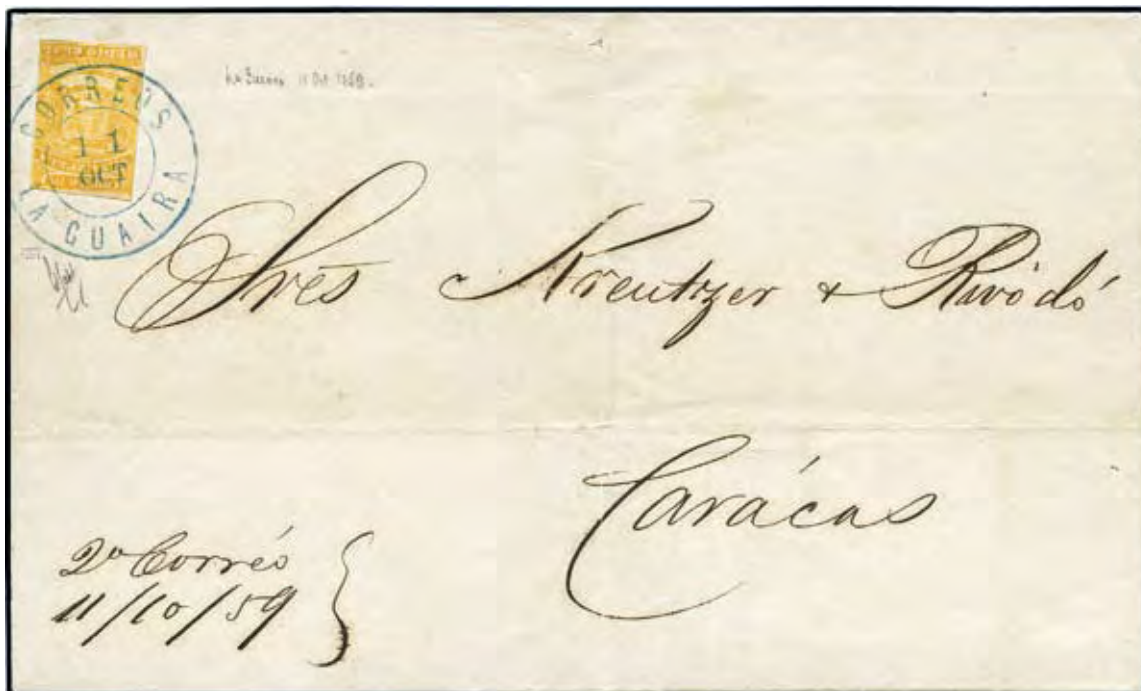 CORREOS
11
OCT
LA GUAIRA
La Guaira 11 Oct 1859.
Srés Kreutzer & Rivódó
Carácas
2º Corréo
11/10/59